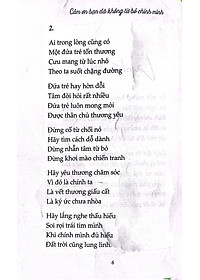 Cảm ơn bạn đã không từ bỏ chính mình
2.
Ai trong lòng cũng có
Một đứa trẻ tổn thương
Cưu mang từ lúc nhỏ
Theo ta suốt chặng đường
Đứa trẻ hay hờn dỗi
Tâm đòi hỏi rất nhiều
Đứa trẻ luôn mong mỏi
Được thân chủ thương yêu
Đừng cố từ chối nó
Hãy tìm cách dỗ dành
Đừng nhẫn tâm từ bỏ
Đừng khơi mào chiến tranh
Hãy yêu thương chăm sóc
Vì đó là chính ta
Là vết thương giấu cất
Là ký ức chưa nhòa
Hãy lắng nghe thấu hiểu
Soi rọi trái tim mình
Khi chính mình đủ hiểu
Đất trời cũng lung linh.
6